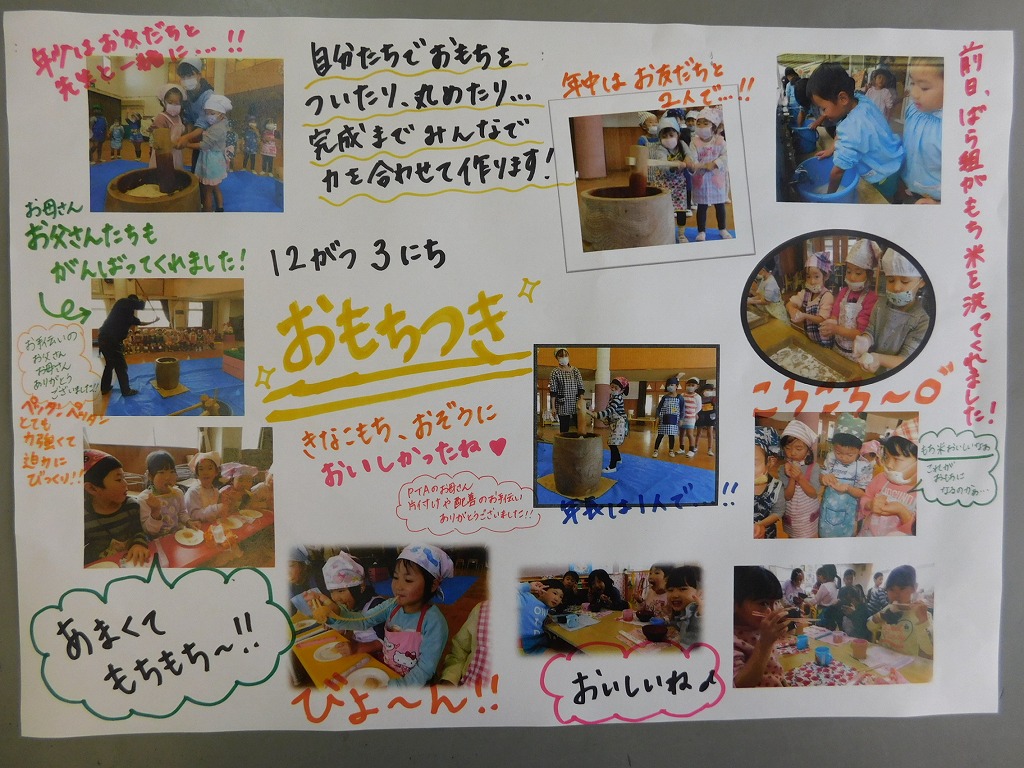 年少はお友だちと
先生と一緒に…!!
自分たちでおもちを
ついたり、丸めたり…
完成までみんなで
力を合わせて作ります!
年中はお友だちと
2人で…!!
前日、ばら組がもち米を洗ってくれました!
お母さん
お父さんたちも
がんばってくれました!
12がつ3にち
おもちつき
お手伝いの
お父さん
お母さん
ありがとう
ございました!!
ペッタンペッタン
とても
力強くて
迫力に
びっくり!!
きなこもち、おぞうに
おいしかったね♥
PTAのお母さん
片付けや配膳のお手伝い
ありがとうございました!!
年長は1人で…!!
ころころ〜
もち米おいしいなぁ
これが
おもちに
なるのかぁ…
あまくて
もちもち〜!!
びよ〜ん!!
おいしいね♪